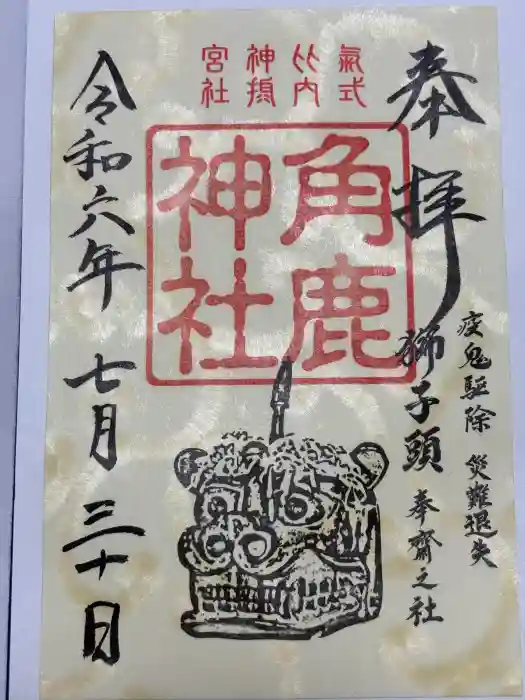 奉拝
疫鬼駆除 災難退失
獅子頭 奉齋之社
氣式
比内
神摂
宮社
角鹿
神社
令和六年 七月 三十日